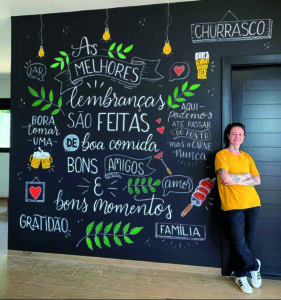 CHURRASCO
As
MELHORES
LAR
lembranças
SÃO FEITAS
DE boa comida
BONS AMIGOS
E AMOR
bons momentos
BORA
TOMAR
UMA
AQUI
podemos
ATÉ PASSAR
DO PONTO
mas A CARNE
nunca
GRATIDÃO
FAMÍLIA